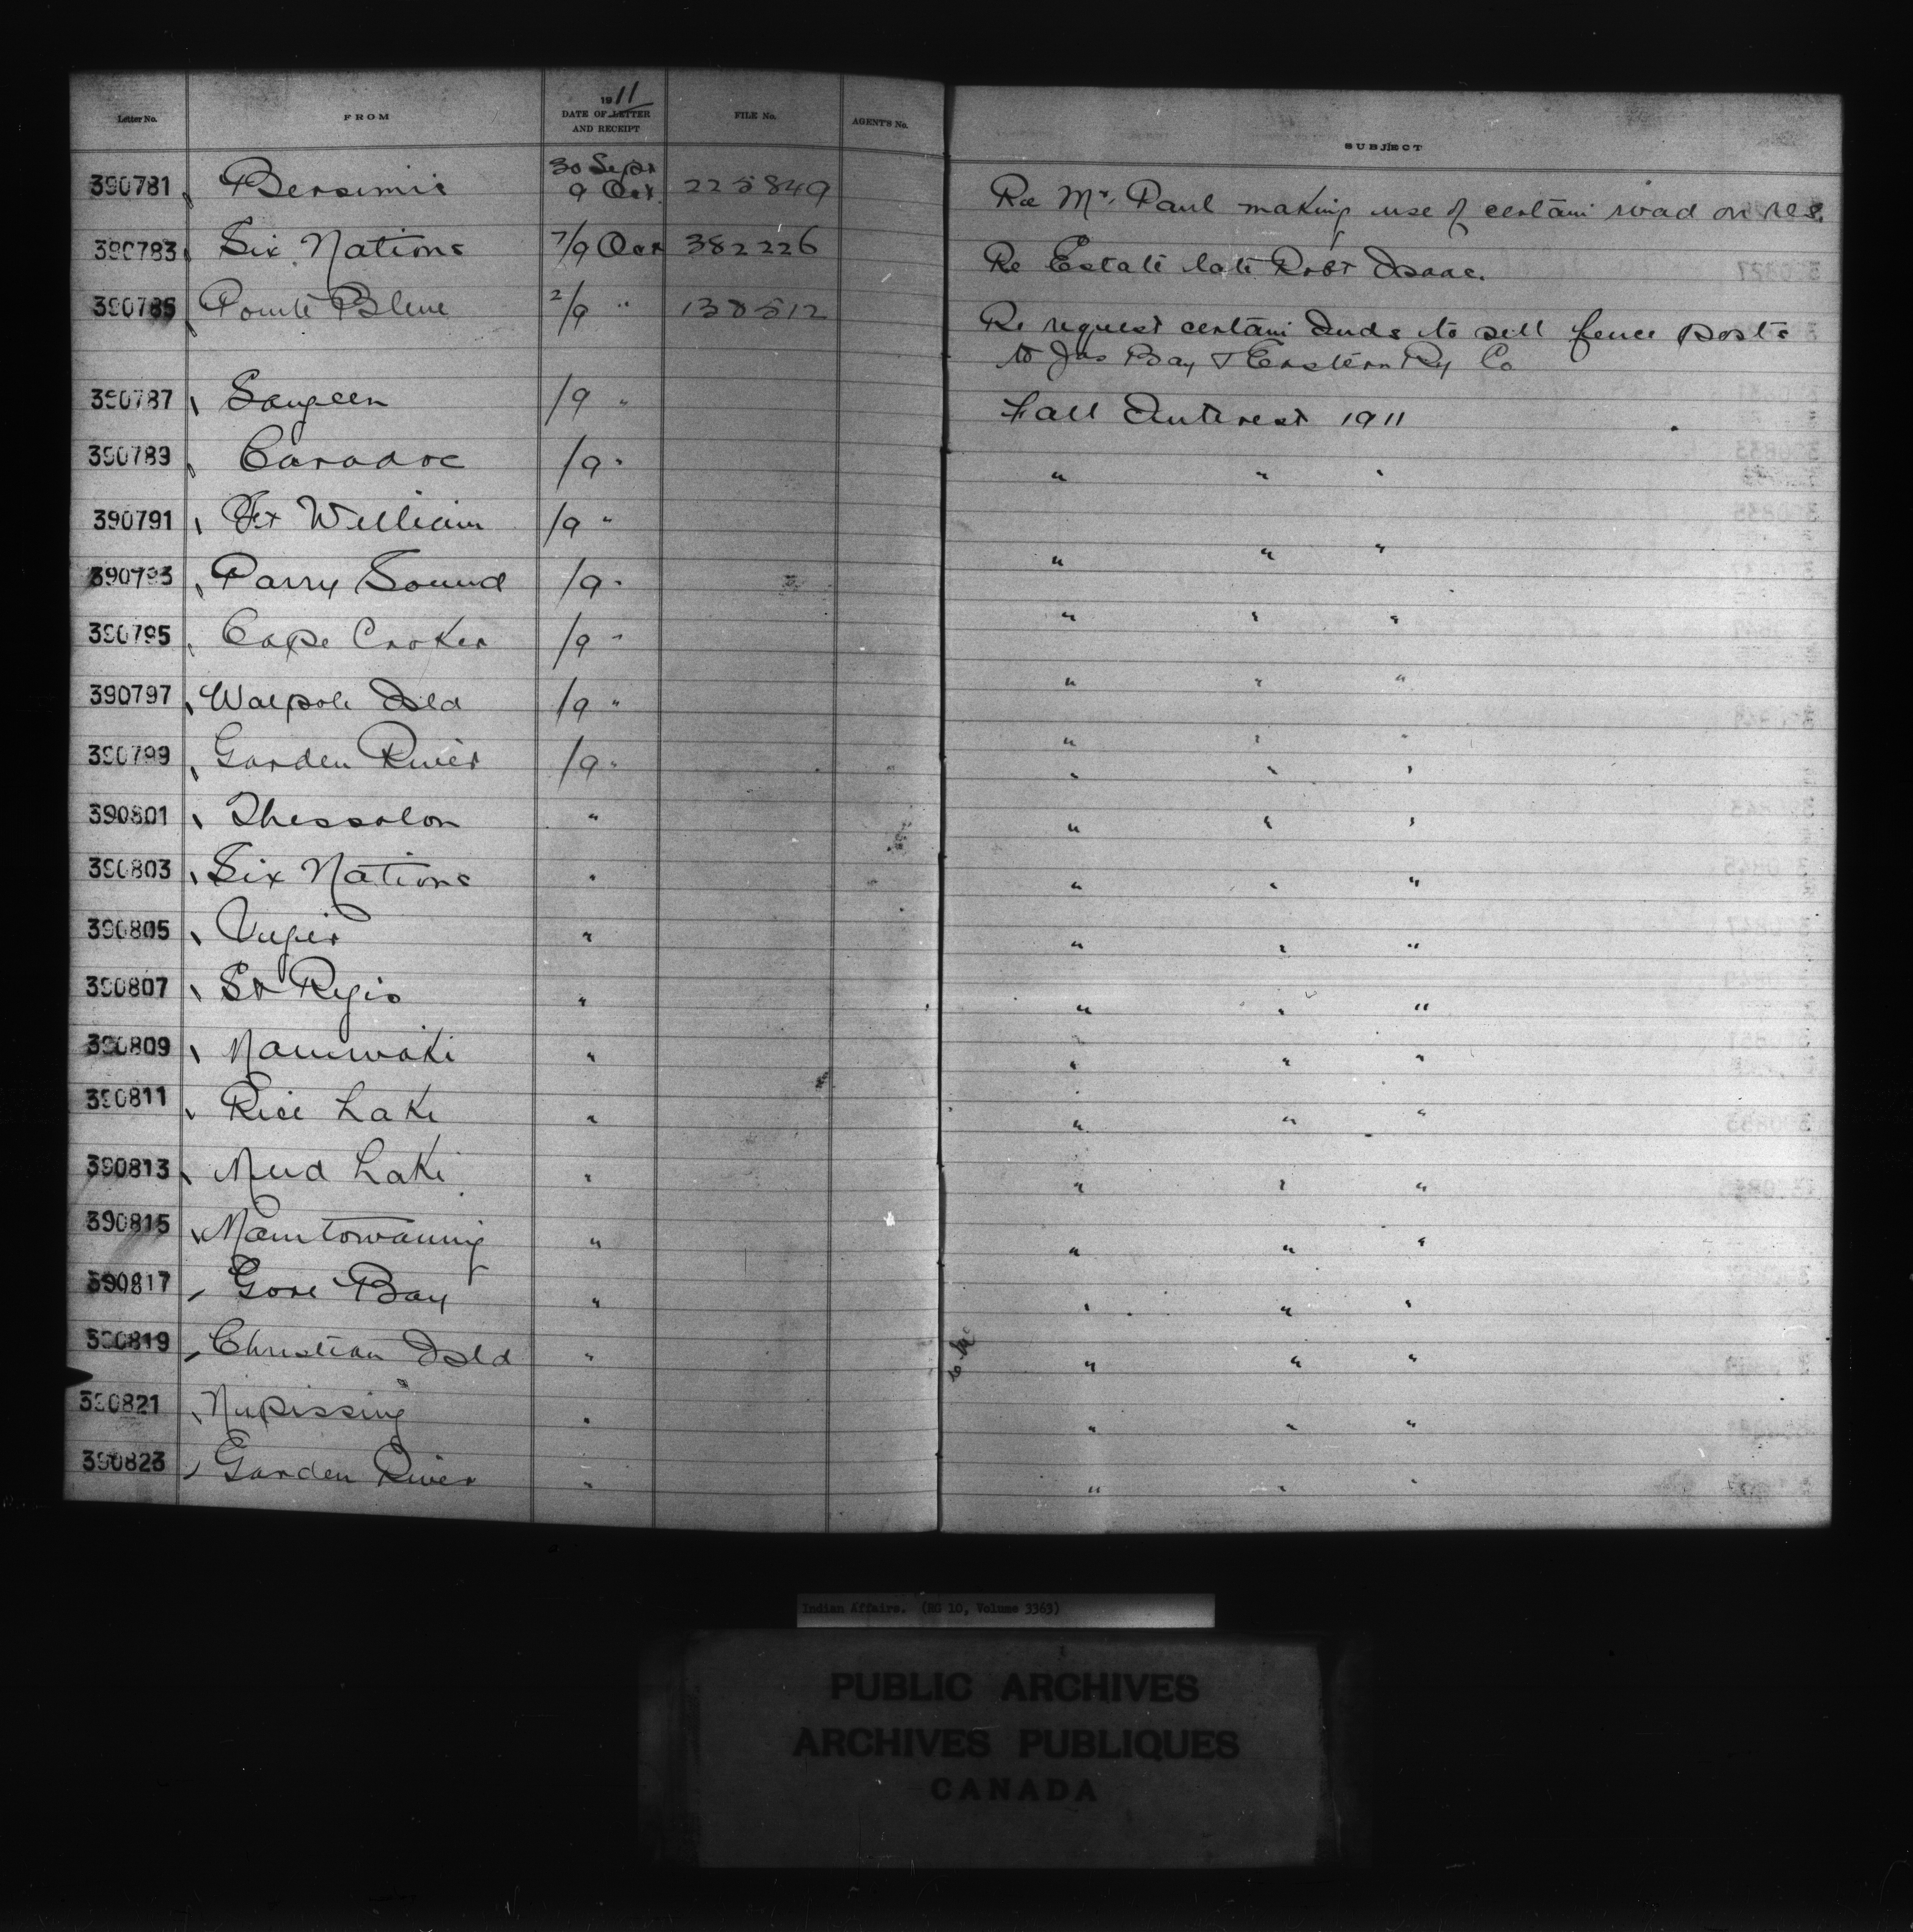 1911
Letter No. FROM DATE OF LETTER AND RECEIPT FILE No. AGENT'S No. SUBJECT
30 Sept
390781 Bersimis 9 Oct. 225849 Re Mr. Paul making use of certain road on res.
390783 Six Nations 7/9 Oct 382226 Re Estate late Robt Isaac.
390785 Pointe Bleue 2/9 " 138512 Re request certain Inds to sell fence posts
to Jas Bay & Eastern Ry Co
390787 Saugeen /9 " Fall Interest 1911
390789 Caradoc /9 " " " "
390791 Ft William /9 " " " "
390793 Parry Sound /9 " " " "
390795 Cape Croker /9 " " " "
390797 Walpole Isld /9 " " " "
390799 Garden River /9 " " " "
390801 Thessalon " " " "
390803 Six Nations " " " "
390805 " " " "
390807 St Regis " " " "
390809 Maniwaki " " " "
390811 Rice Lake " " " "
390813 Mud Lake " " " "
390815 Manitowaning " " " "
390817 Gore Bay " " " "
390819 Christian Isld " " " "
390821 Nipissing " " " "
390823 Garden River " " " "
Indian Affairs. (RG 10, Volume 3363)
PUBLIC ARCHIVES
ARCHIVES PUBLIQUES
CANADA